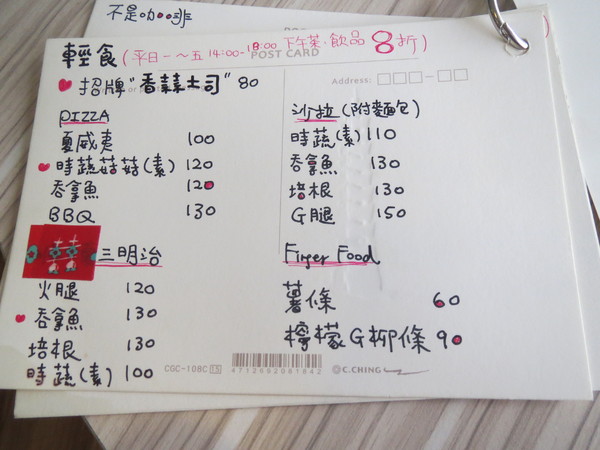 不是咖啡
輕食(平日一～五 14:00-18:00 下午茶.飲品8折)
POST CARD
招牌"香蒜土司" 80
Address:
PIZZA
夏威夷 100
時蔬菇菇(素) 120
吞拿魚 120
BBQ 130
三明治
火腿 120
吞拿魚 130
培根 130
時蔬(素) 100
沙拉(附麵包)
時蔬(素) 110
吞拿魚 130
培根 130
G腿 150
Finger Food
薯條 60
檸檬G柳條 90
CGC-108C 15
4712692081642
C.CHING